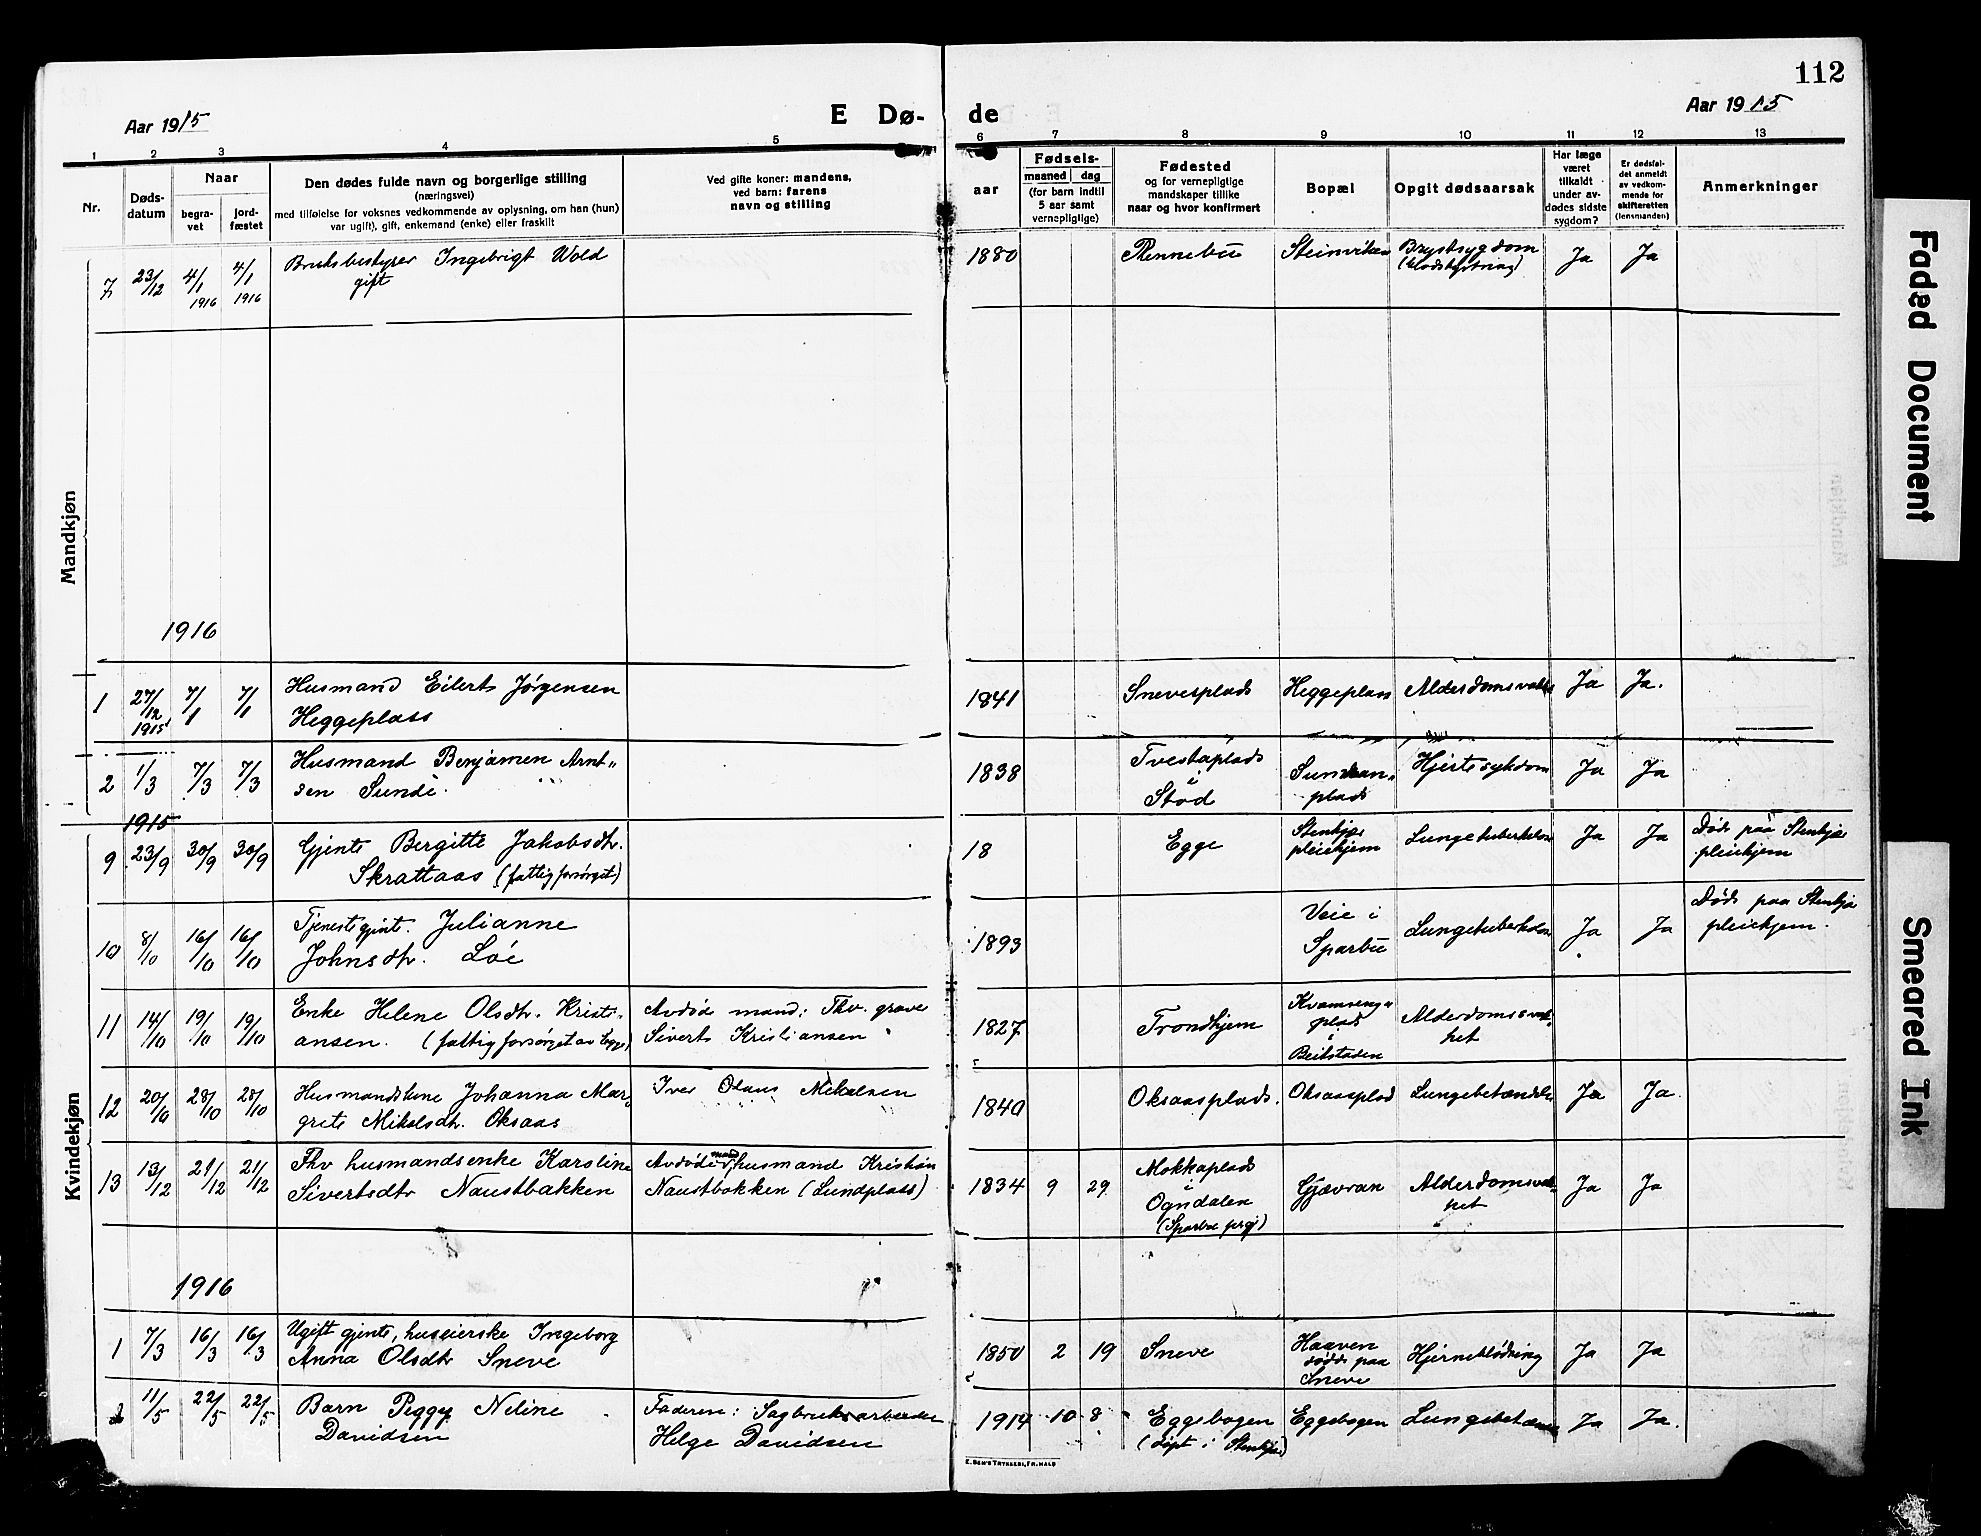 112
Aar 1915
E Dø-
de
Aar 1915
1 2 3 4 5 6 7 8 9 10 11 12 13
Nr.
Døds-
datum
Naar
begra-
vet
jord-
fæstet
Den dødes fulde navn og borgerlige stilling
(næringsvei)
med tilføielse for voksnes vedkommende av oplysning, om han (hun)
var ugift, gift, enkemand (enke) eller fraskilt
Ved gifte koner: mandens,
ved barn: farens
navn og stilling
aar
Fødsels-
maaned dag
(for barn indtil
5 aar samt
vernepligtige)
Fødested
og for vernepligtige
mandskaper tillike
naar og hvor konfirmert
Bopæl
Opgit dødsaarsak
Har læge
været
tilkaldt
under av-
dødes sidste
sygdom?
Er dødsfal-
det anmeldt
av vedkom-
mende for
skifteretten
(lensmanden)
Anmerkninger
Mandkjøn
7 23/12 4/1 1916 4/1 1916 Bruksbestyrer Ingebrigt Wold
gift
1880 Rennebu Steinviken Brystsygdom
(blodstyrtning) Ja Ja
1916
1 27/12 1915 7/1 7/1 Husmand Eilert Jørgensen
Heggeplass
1841 Snevesplads Heggeplass Alderdomsvakh Ja Ja.
2 1/3 7/3 7/3 Husmand Benjamen Arnt„
sen Sunde.
1838 Tvestaplads
i
Stod
Sundsan„
plads
Hjertesykdom Ja Ja
Kvindekjøn
1915
9 23/9 30/9 30/9 Gjente Bergitte Jakobsdtr.
Skrattaas (fattigforsørget)
18 Egge Stenkjær
pleiehjem
Lungetuberkulose Ja Ja Død paa Stenkjær
pleiehjem
10 8/10 16/10 16/10 Tjenestgjent. Julianne
Johnsdtr. Løe
1893 Veie i
Sparbu
Lungetuberkulose Ja Ja Død paa Stenkjær
pleiehjem.
11 14/10 19/10 19/10 Enke Helene Olsdtr. Kristi-
ansen. (fattigforsørget av Egge)
Avdøde mand: Fhv. graver
Sivert Kristiansen
1827 Trondhjem Kvamseng„
plads
i
Beitstaden
Alderdomssvak-
het
12 20/10 28/10 28/10 Husmandskone Johanna Mar„
grete Mikalsdtr. Oksaas
Iver Olaus Mikalsen
1840 Oksaasplads. Oksaasplad Lungebetændelse Ja Ja.
13 13/12 21/12 21/12 Fhv husmandsenke Karoline
Sivertsdtr Naustbakken
Avdøde mand husmand Kristian
Naustbakken (Lundplass)
1834 9 29 Mokkaplads
i
Ogndalen
(Sparbu prgj)
Gjævran Alderdomsvak-
het
Ja Ja
1916
1 7/3 16/3 16/3 Ugift gjente, huseierske Ingeborg
Anna Olsdtr Sneve
1850 2 19 Sneve Haaven
døde paa
Sneve
Hjerneblødning Ja Ja
2 11/5 22/5 22/5 Barn Peggy Neline
Davidsen
Faderen: Sagbruksarbeider
Helge Davidsen
1914 10 8 Eggebogen
(døpt i Stenkjær)
Eggebogen Lungebetænd Ja Ja.
E. SEM'S TRYKKERI, FR.HALD
Faded Document
Smeared Ink